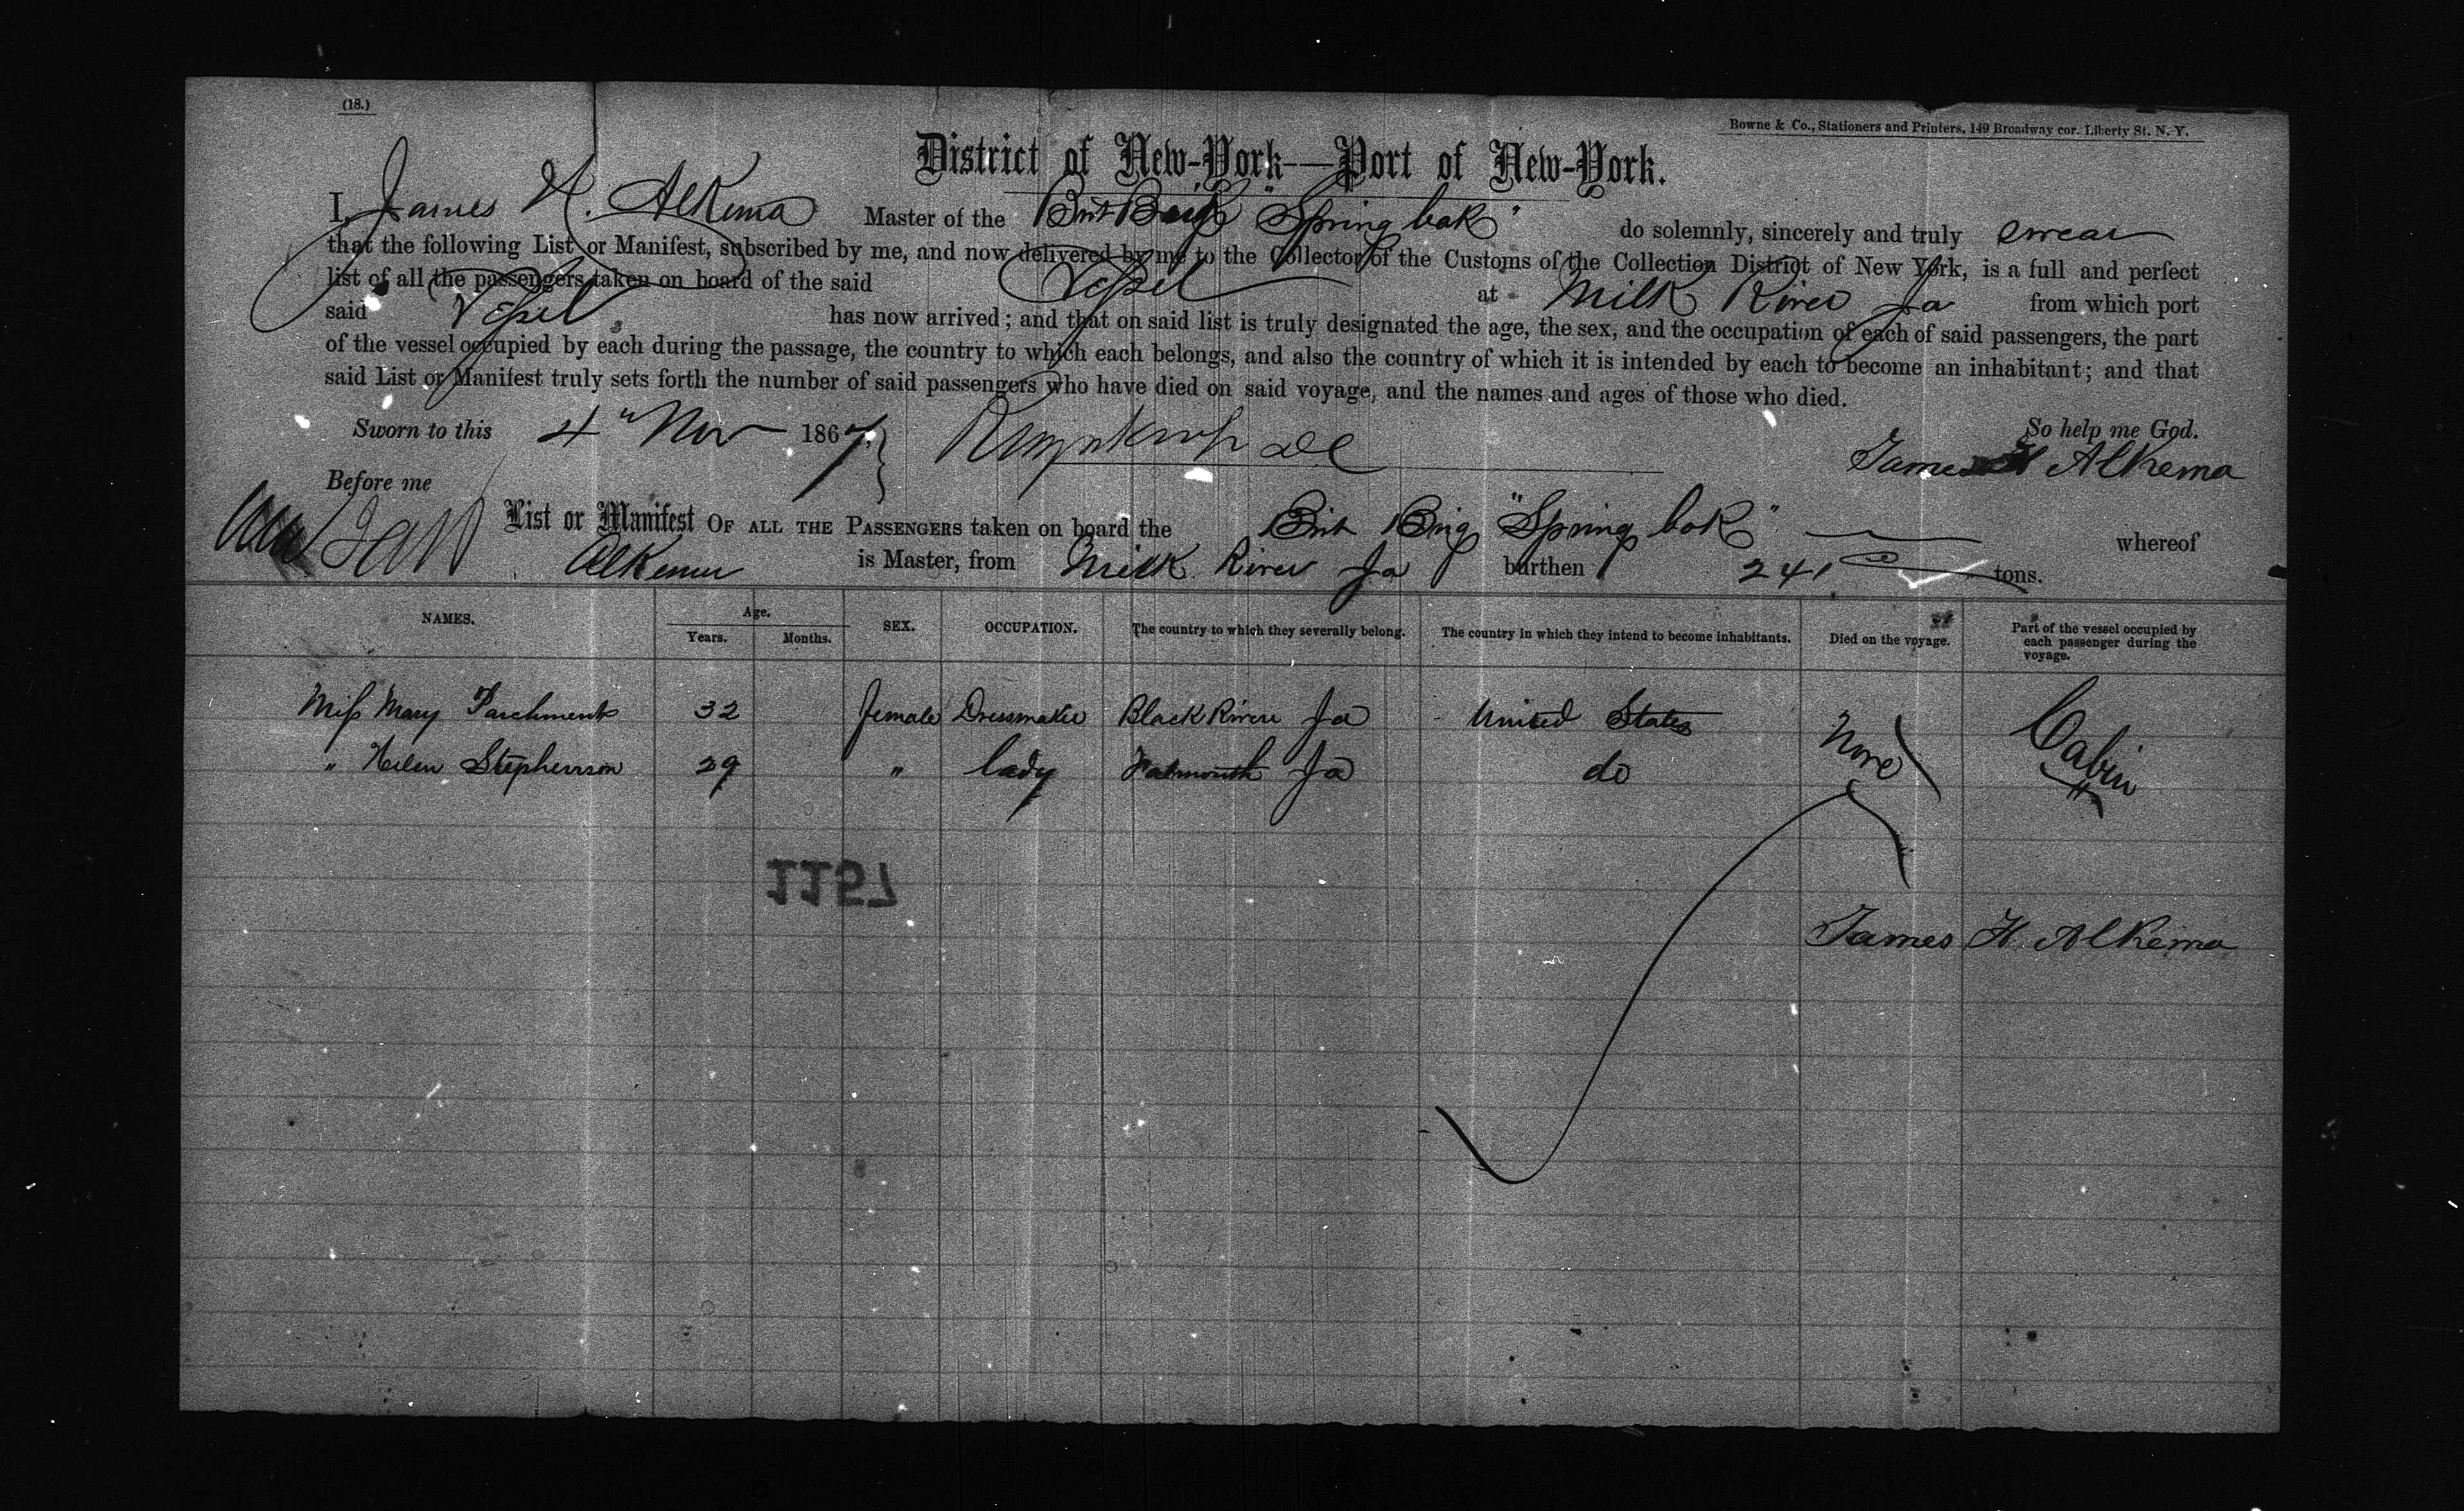 (18.)
Bowne & Co., Stationers and Printers, 149 Broadway cor. Liberty St. N. Y.
District of New-York—Port of New-York.
I, James H. Alkema Master of the Brit Brig "Spring bok" do solemnly, sincerely and truly swear
that the following List or Manifest, subscribed by me, and now delivered by me to the Collector of the Customs of the Collection District of New York, is a full and perfect
list of all the passengers taken on board of the said Vessel at Milk River Ja from which port
said Vessel has now arrived; and that on said list is truly designated the age, the sex, and the occupation of each of said passengers, the part
of the vessel occupied by each during the passage, the country to which each belongs, and also the country of which it is intended by each to become an inhabitant; and that
said List or Manifest truly sets forth the number of said passengers who have died on said voyage, and the names and ages of those who died.
Sworn to this 4" Nov 1867, So help me God.
James H Alkema
Before me
List or Manifest OF ALL THE PASSENGERS taken on board the Brit Brig "Spring bok" whereof
Alkema is Master, from Milk River Ja burthen 241 tons.
NAMES. Age. Years. Months. SEX. OCCUPATION. The country to which they severally belong. The country in which they intend to become inhabitants. Died on the voyage. Part of the vessel occupied by each passenger during the voyage.
Miss Mary Parchment 32 female Dressmaker Black River Ja United States None Cabin
" Helen Stephenson 29 " lady Falmouth Ja do
1157
James H. Alkema